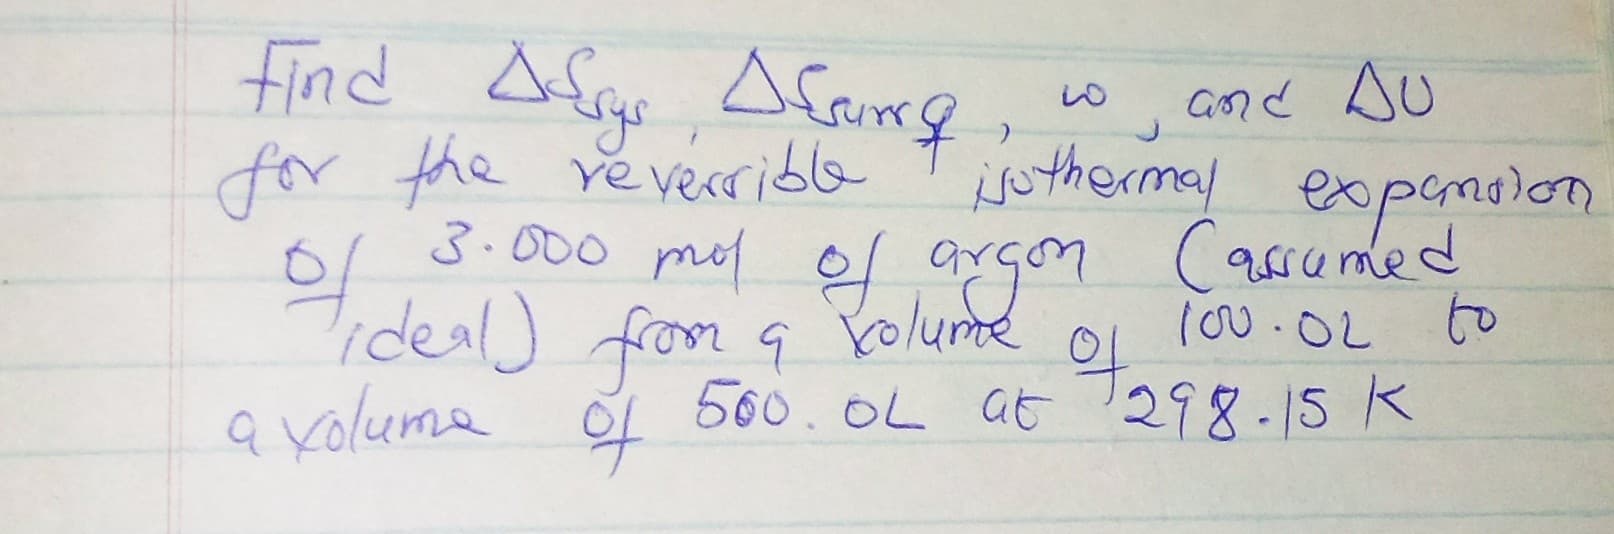 Find ΔSsys, ΔSsurr q, w, and ΔU
for the reversible isothermal expansion
of 3.000 mol of argon (assumed
ideal) from a volume of 100.0L to
a volume of 500.0L at 298.15 K